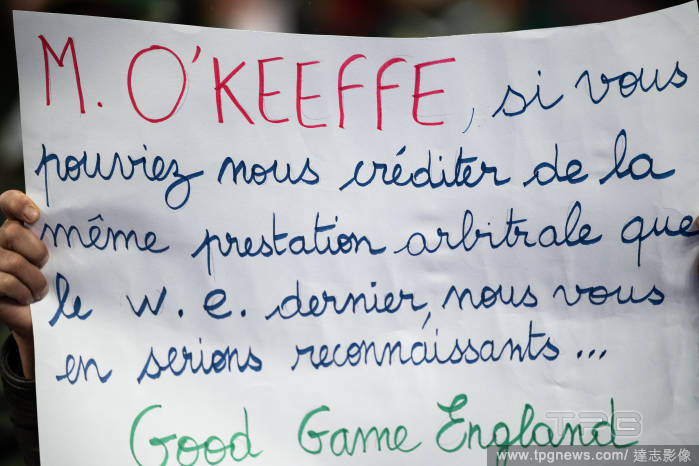 M. O'KEEFFE, si vous
pouviez nous créditer de la
même prestation arbitrale que
le w. e. dernier, nous vous
en serions reconnaissants...
Good Game England
TPG
www.tpgnews.com/ 達志影像